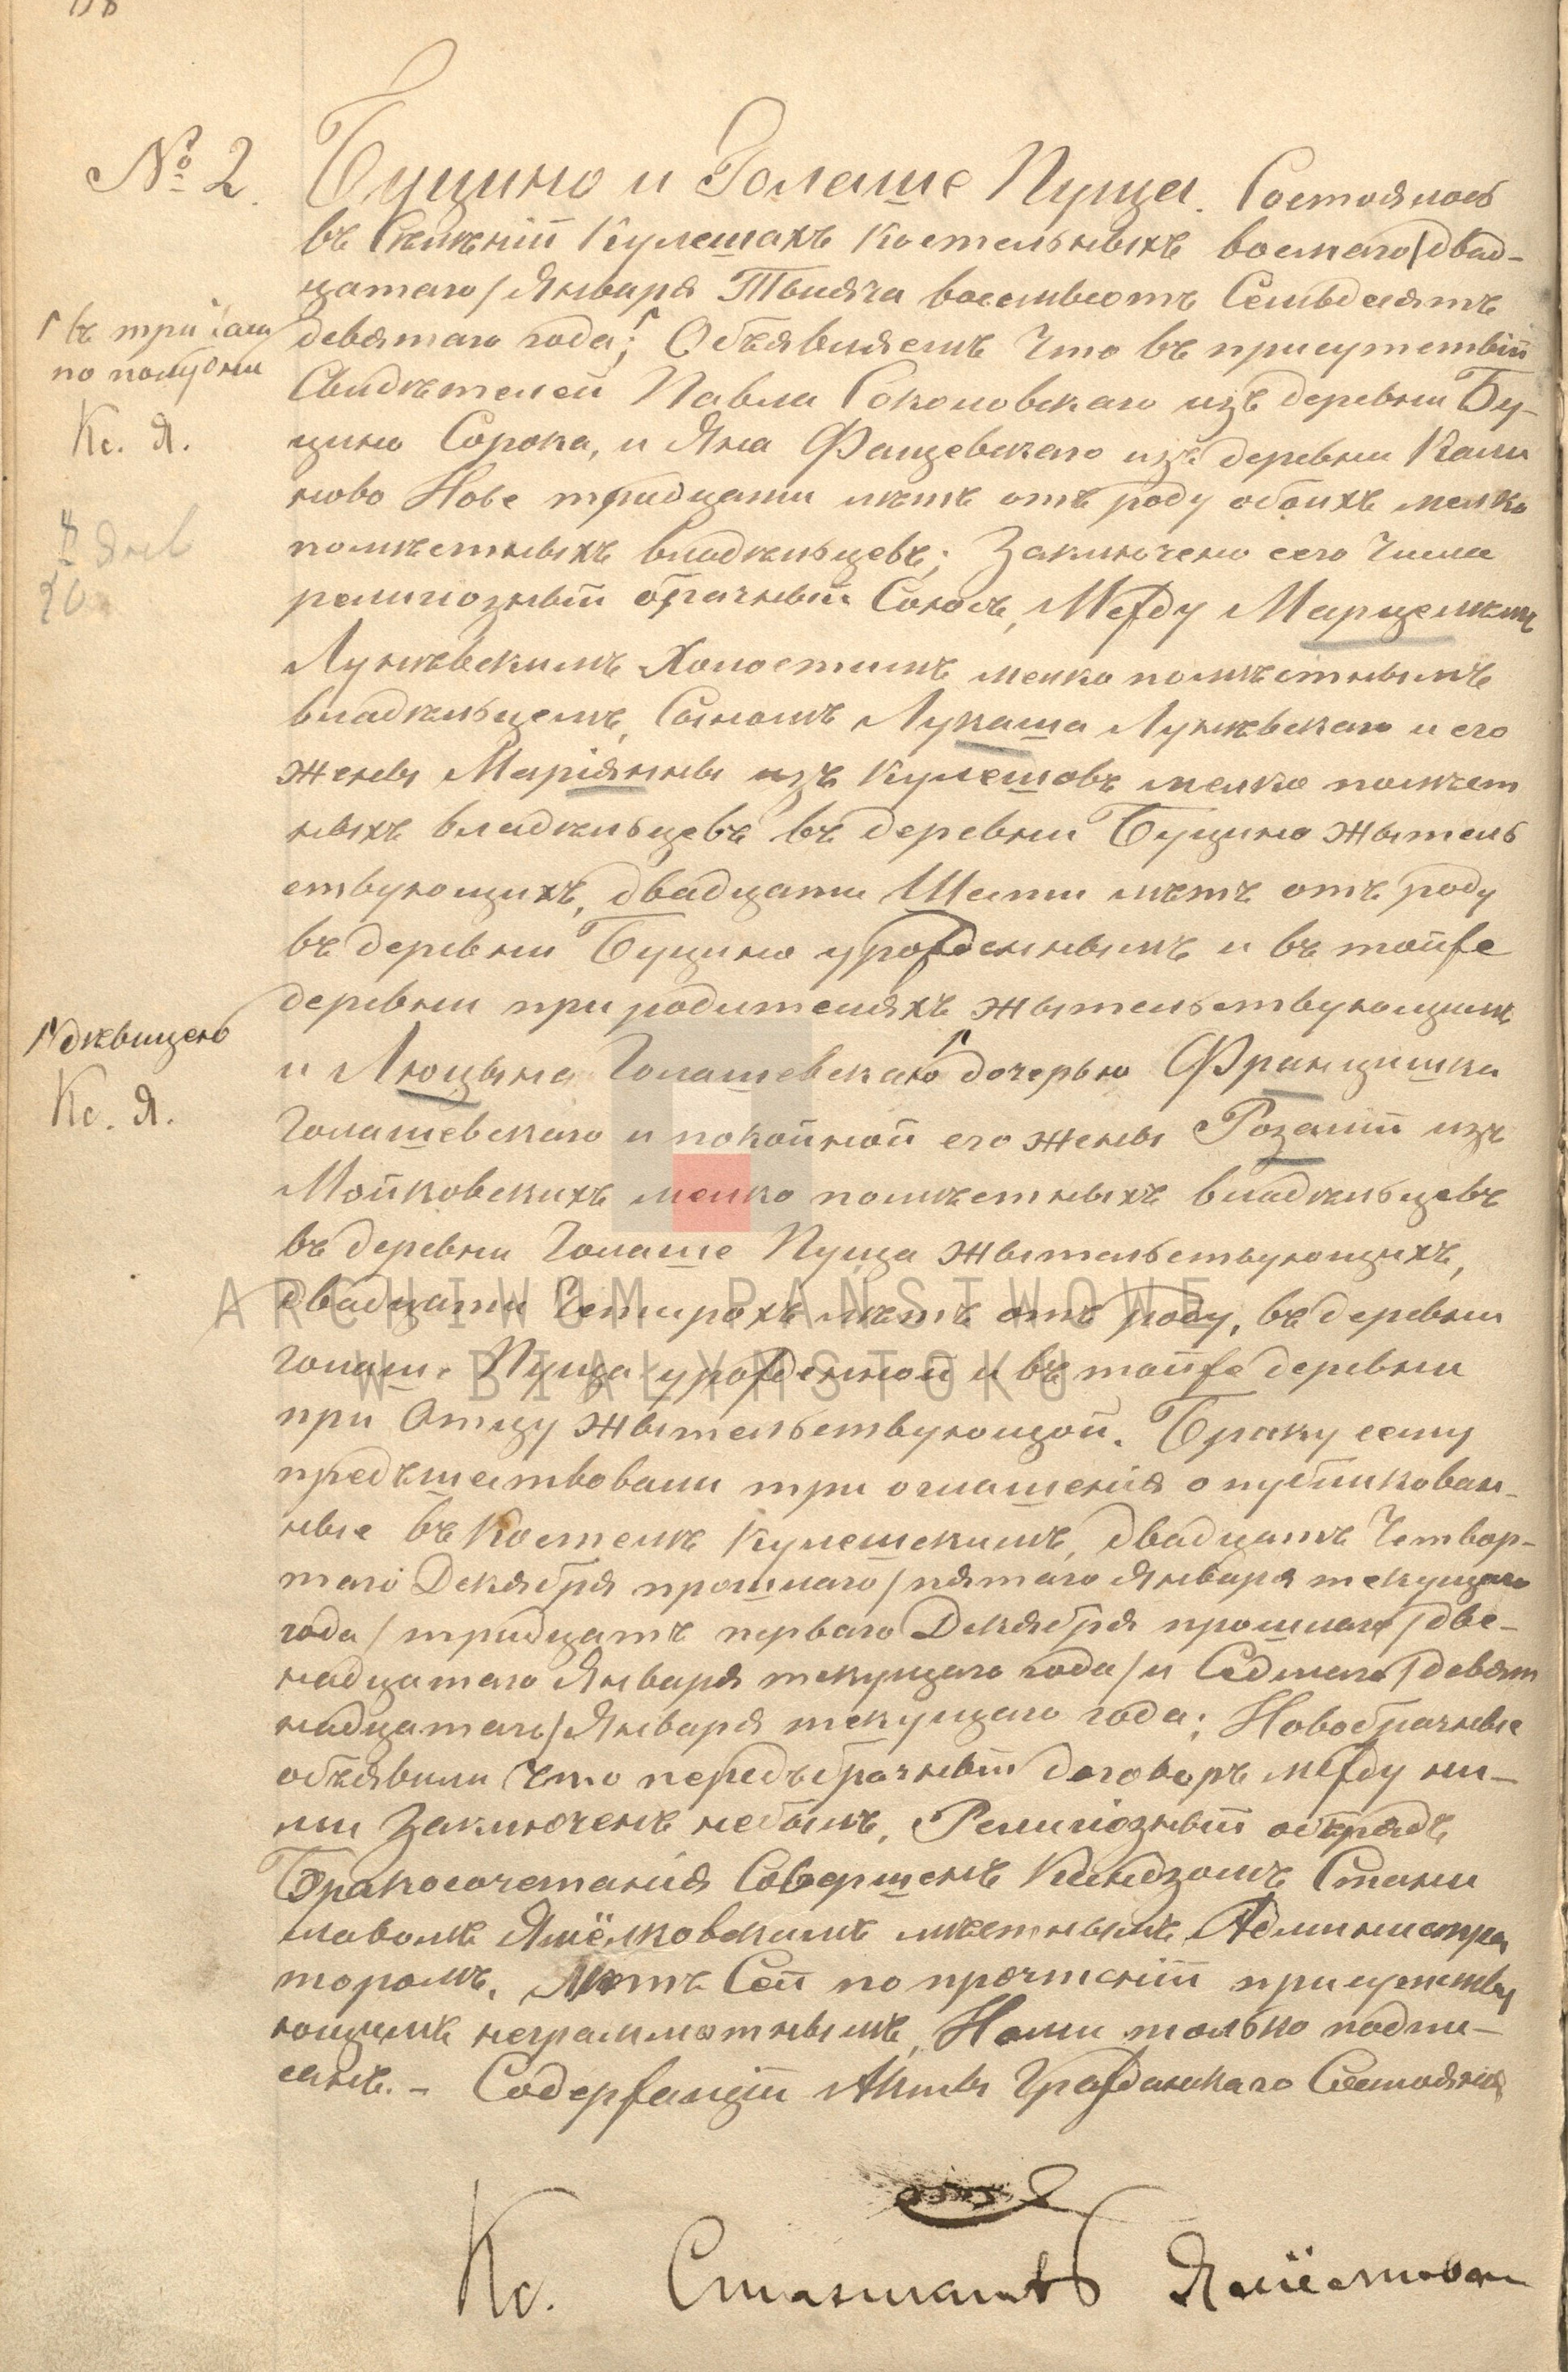 158
№ 2.
Буцино и Голаше Пуща. Состоялось
въ Селеніи Кулешахъ Костельныхъ восмаго/двад-
цатаго/Января Тысяча восемьсотъ Семьдесятъ
девятаго года; Объявляемъ что въ присутствіи
Свидѣтелей Павла Соколовскаго изъ деревни Бу-
цино Сорока, и Яна Фащевскаго изъ деревни Кали
ново Нове тридцати лѣтъ отъ роду обоихъ мелко
помѣстныхъ владѣльцевъ; Заключено сего числа
религіозный брачный Союзъ, Между Марцелимъ
Лунѣвскимъ Холостимъ мелко помѣстнымъ
владѣльцемъ, Сыномъ Лукаша Лунѣвскаго и его
жены Маріянны изъ Кулешовъ мелко помѣст
ныхъ владѣльцевъ въ деревни Буцино жытель
ствующихъ, двадцати Шести лѣтъ отъ роду
въ деревни Буцино урожденнымъ и въ тойже
деревни при родителяхъ жытельствующимъ
и Люцына Голашевскаю дочерью Францишка
Голашевскаго и покойной его жены Розаліи изъ
Мойковскихъ мелко помѣстныхъ владѣльцевъ
въ деревни Голаше Пуща жытельствующихъ,
двадцати Четирохъ лѣтъ отъ роду, въ деревни
Голаше Пуща урожденной и въ тойже деревни
при Отцу жытельствующой. Браку сему
предъшествовали три оглашенія опубликован-
ные въ Костелѣ Кулешскимъ, двадцать Четвор-
таго Декября прошлаго/пятаго Января текущаго
года/тридцать перваго Декября прошлаго/две-
надцатаго Января текущаго года/и Седмаго/девят
надцатаго/Января текущаго года; Новобрачные
объявили что передъбрачный договоръ между ни-
ми Заключенъ небылъ, Религіозный обрядъ
Бракосочетанія Совершенъ Ксендзомъ Стани
славомъ Ямёлковскимъ мѣстнымъ Администра
торомъ. Актъ Сей по прочтеніи присутству
ющимъ неграмматнымъ, Нами только подпи-
санъ. - Содержащій Акты Гражданскаго Состоянія
Кс. Станиславъ Ямёлковски
въ три часы
по полудни
Кс. Я.
8 Янв
20
дѣвицею
Кс. Я.
ARCHIWUM PAŃSTWOWE
W BIAŁYMSTOKU